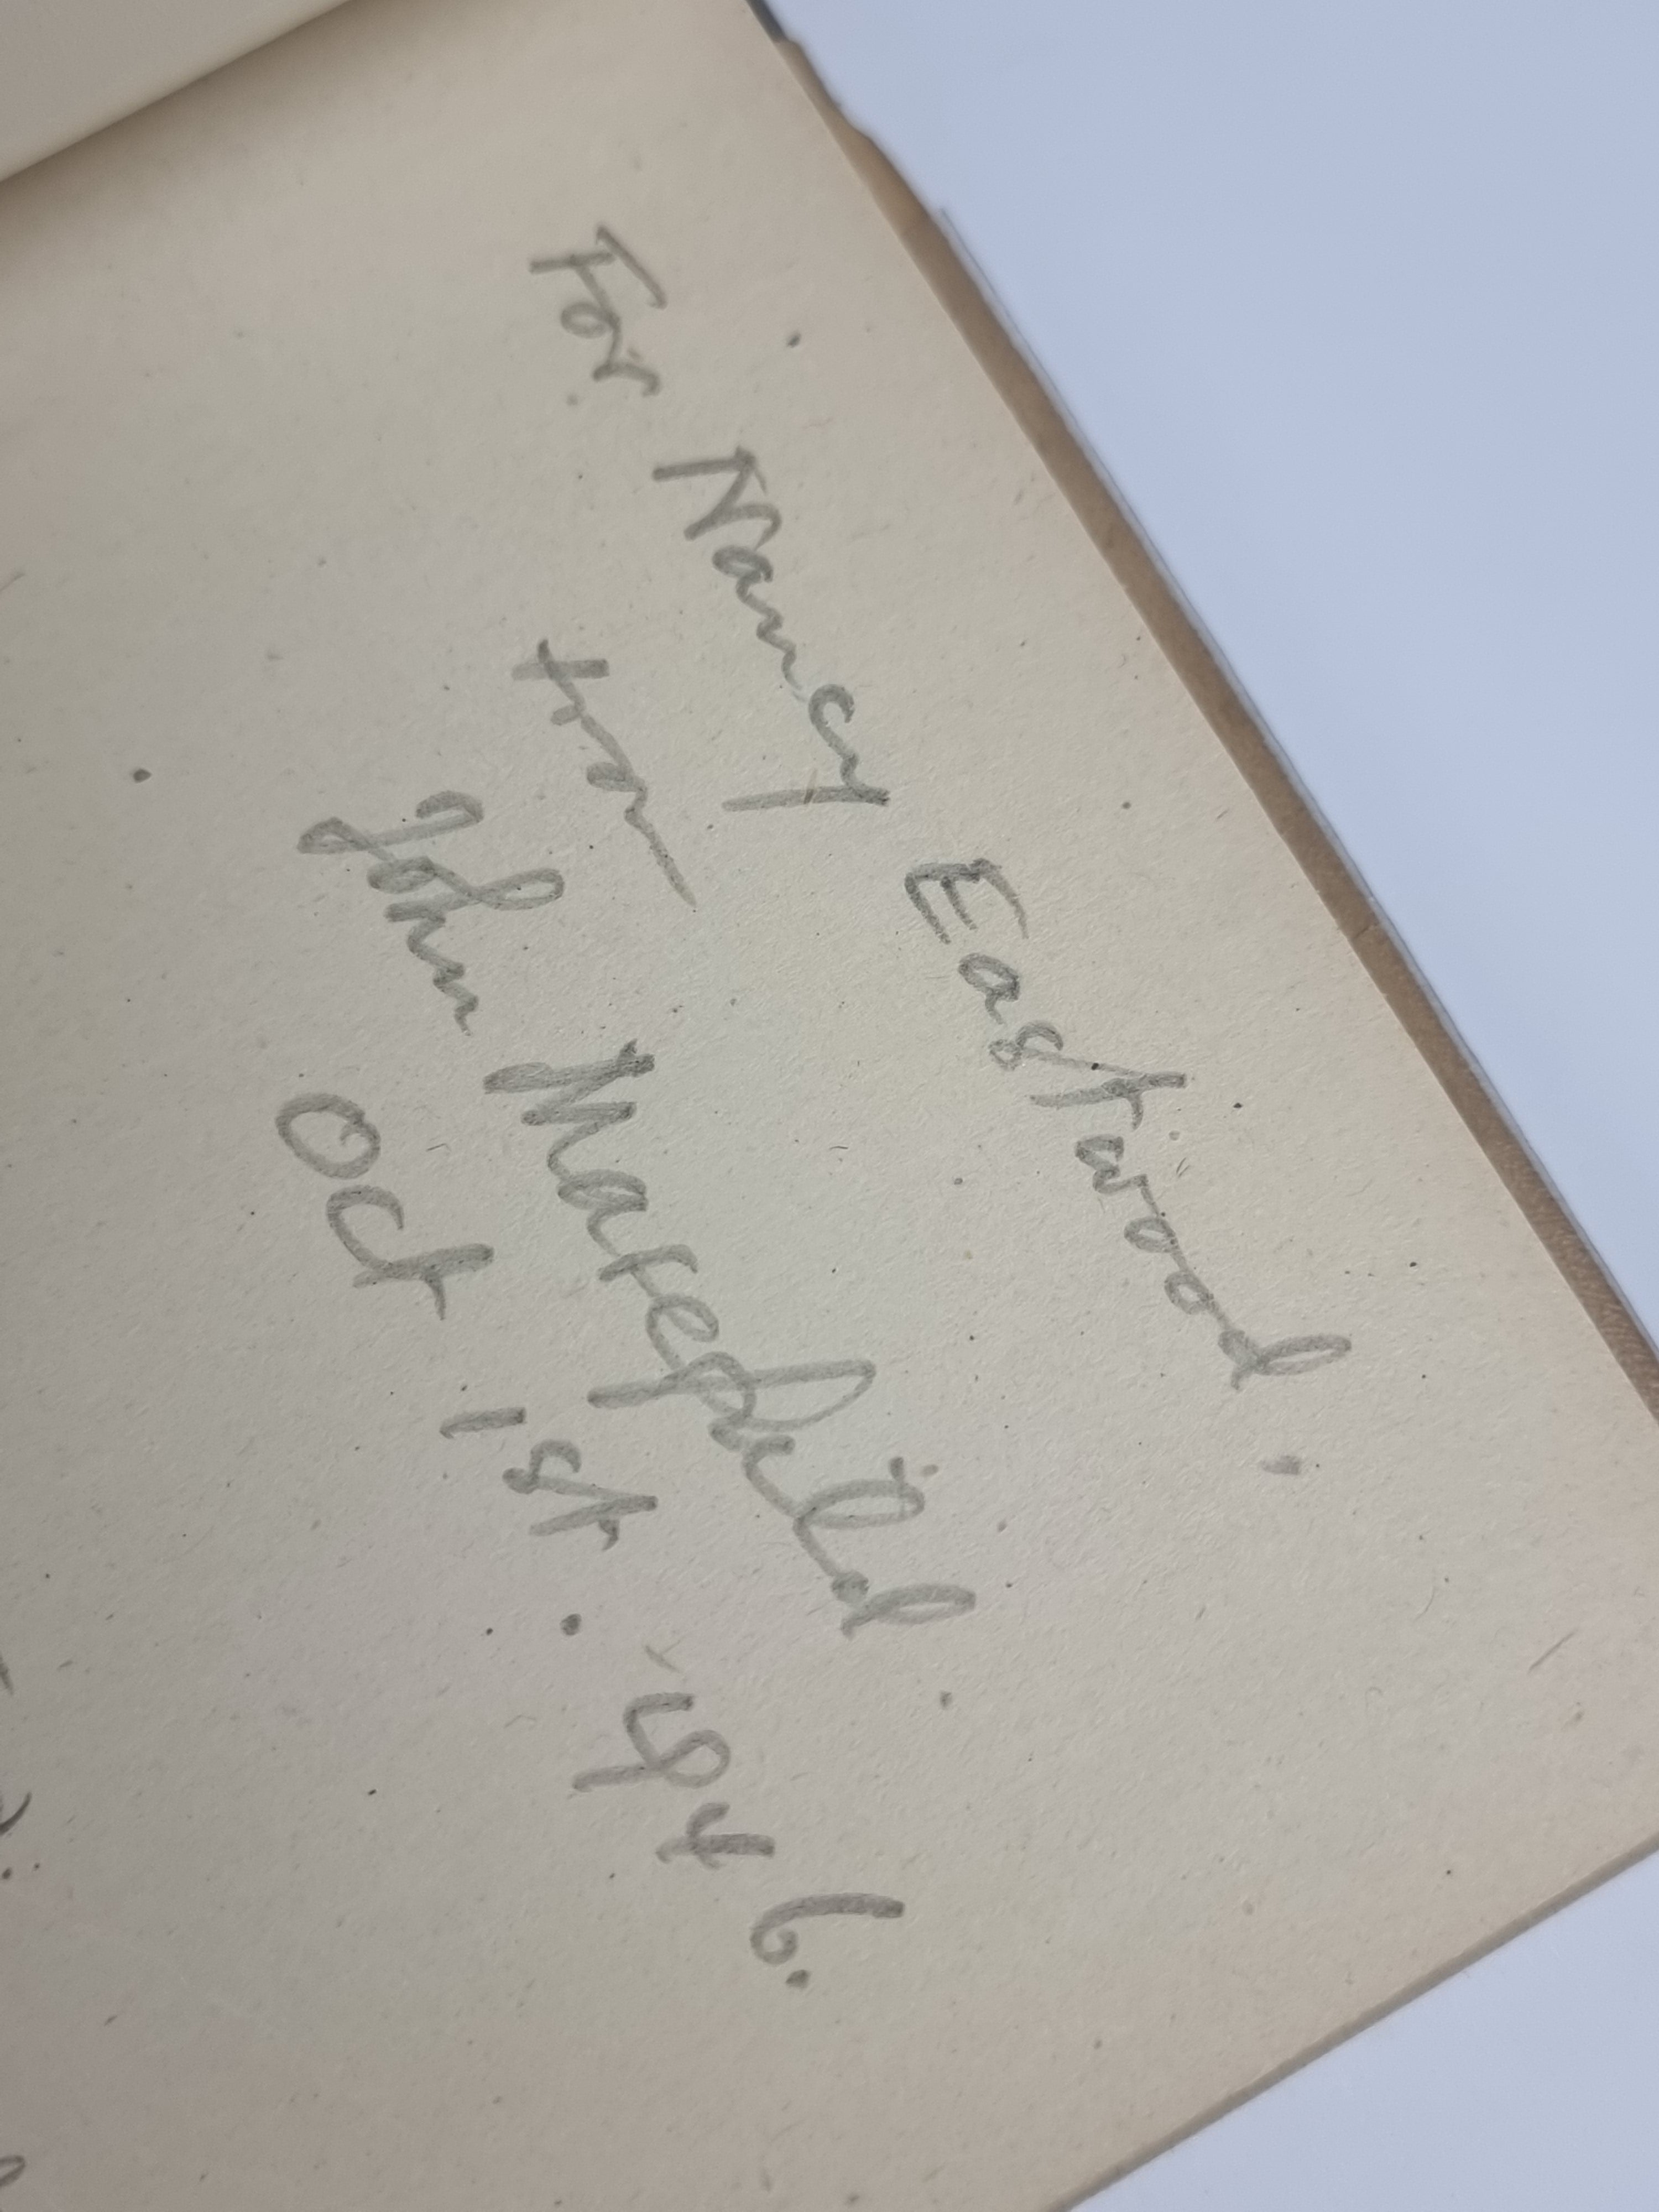 For Nancy Eastwood.
from
John Masefield.
Oct 1st. 1946.